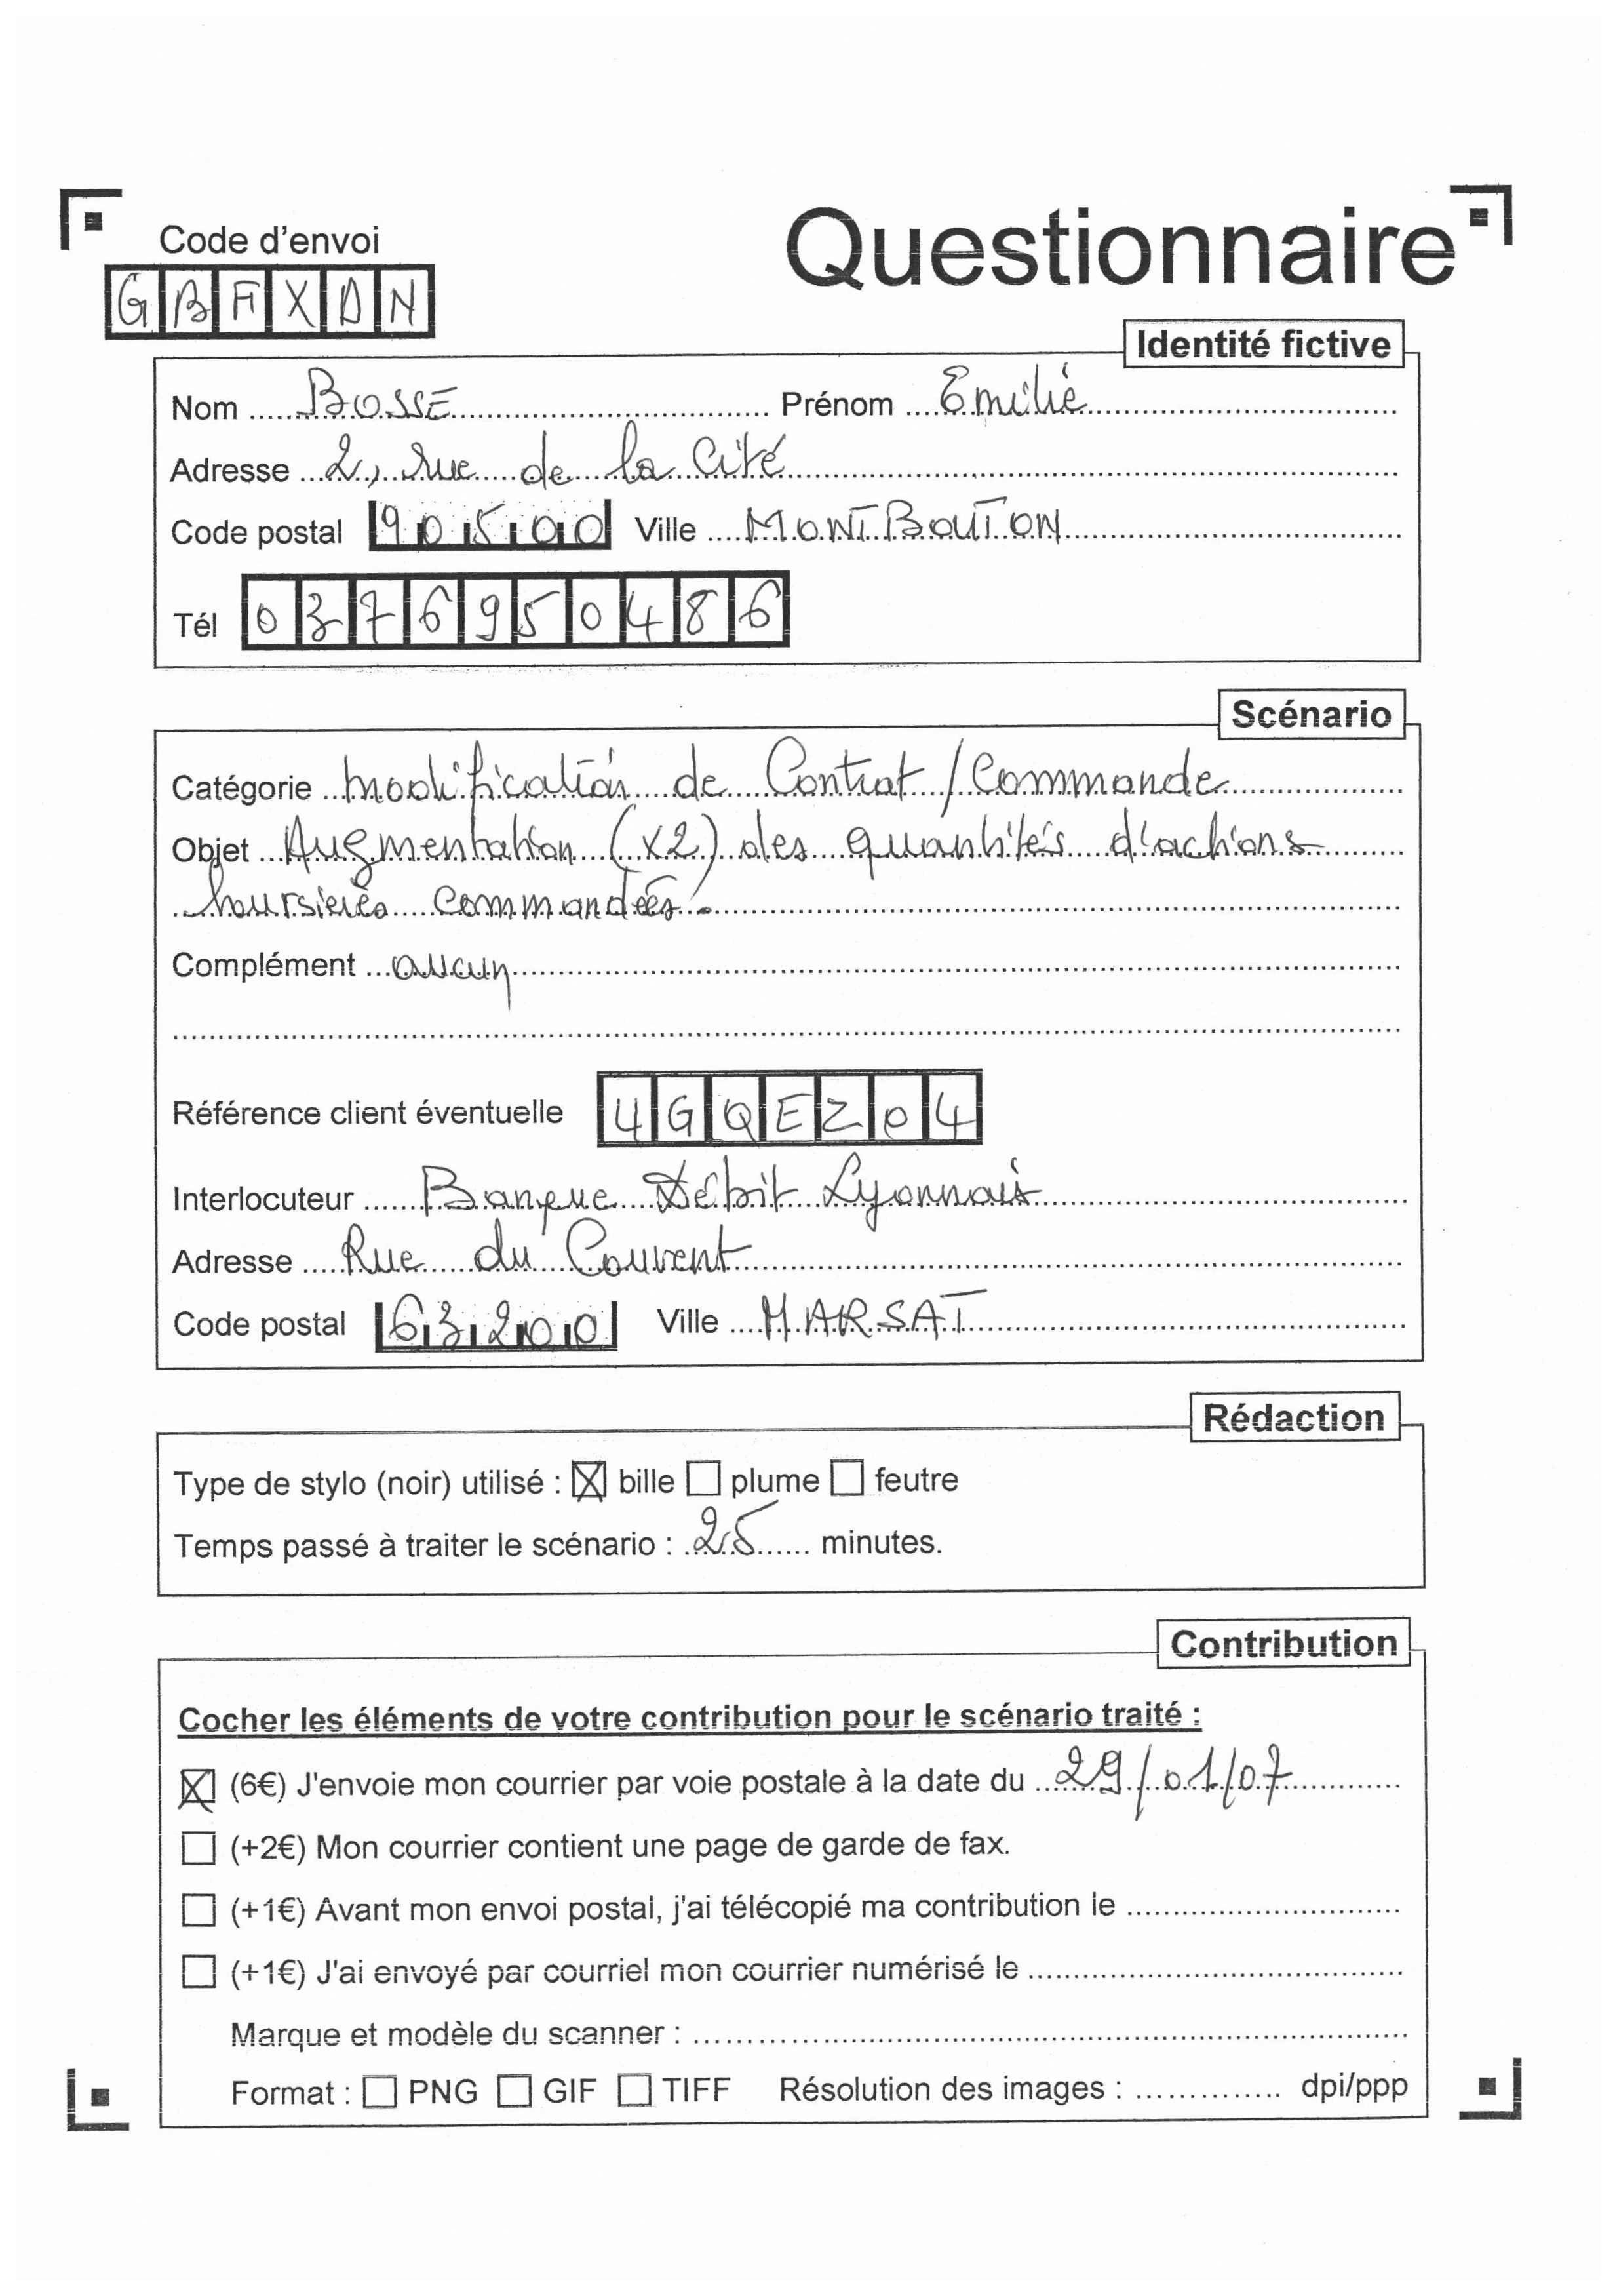 Code d'envoi
Questionnaire
GBFXDN
Identité fictive
Nom BOSSE Prénom Emilie
Adresse 2, rue de la Cité
Code postal 90500 Ville MONTBOUTON
Tél 0376950486
Scénario
Catégorie modification de Contrat / Commande
Objet Augmentation (x2) des quantités d'actions
boursières commandées.
Complément aucun
Référence client éventuelle 4GQEZ04
Interlocuteur Banque Débit Lyonnais
Adresse Rue du Couvent
Code postal 63200 Ville MARSAT
Rédaction
Type de stylo (noir) utilisé : ☒ bille ☐ plume ☐ feutre
Temps passé à traiter le scénario : 25 minutes.
Contribution
Cocher les éléments de votre contribution pour le scénario traité :
☒ (6€) J'envoie mon courrier par voie postale à la date du 29/01/07
☐ (+2€) Mon courrier contient une page de garde de fax.
☐ (+1€) Avant mon envoi postal, j'ai télécopié ma contribution le
☐ (+1€) J'ai envoyé par courriel mon courrier numérisé le
Marque et modèle du scanner :
Format : ☐ PNG ☐ GIF ☐ TIFF Résolution des images : dpi/ppp